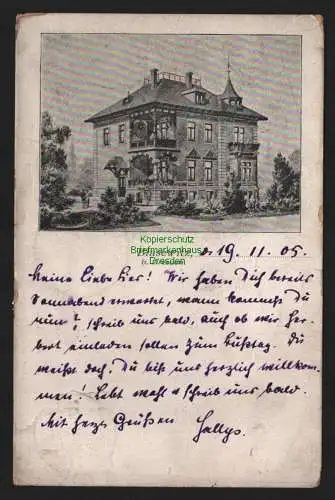 Kopierschutz
Briefmarken
Blasewitz, d. 19. 11. 05.
Meine Liebe ! Wir haben Dich bereits
Sonnabend erwartet, wann kommst Du
nun? schreib uns bald, auch ob wir Her-
bert einladen sollen zum Bußtag. Du
weißt doch, Du bist uns herzlich willkom-
men! Lebt wohl u schreib uns bald.
Mit herzl Grüßen